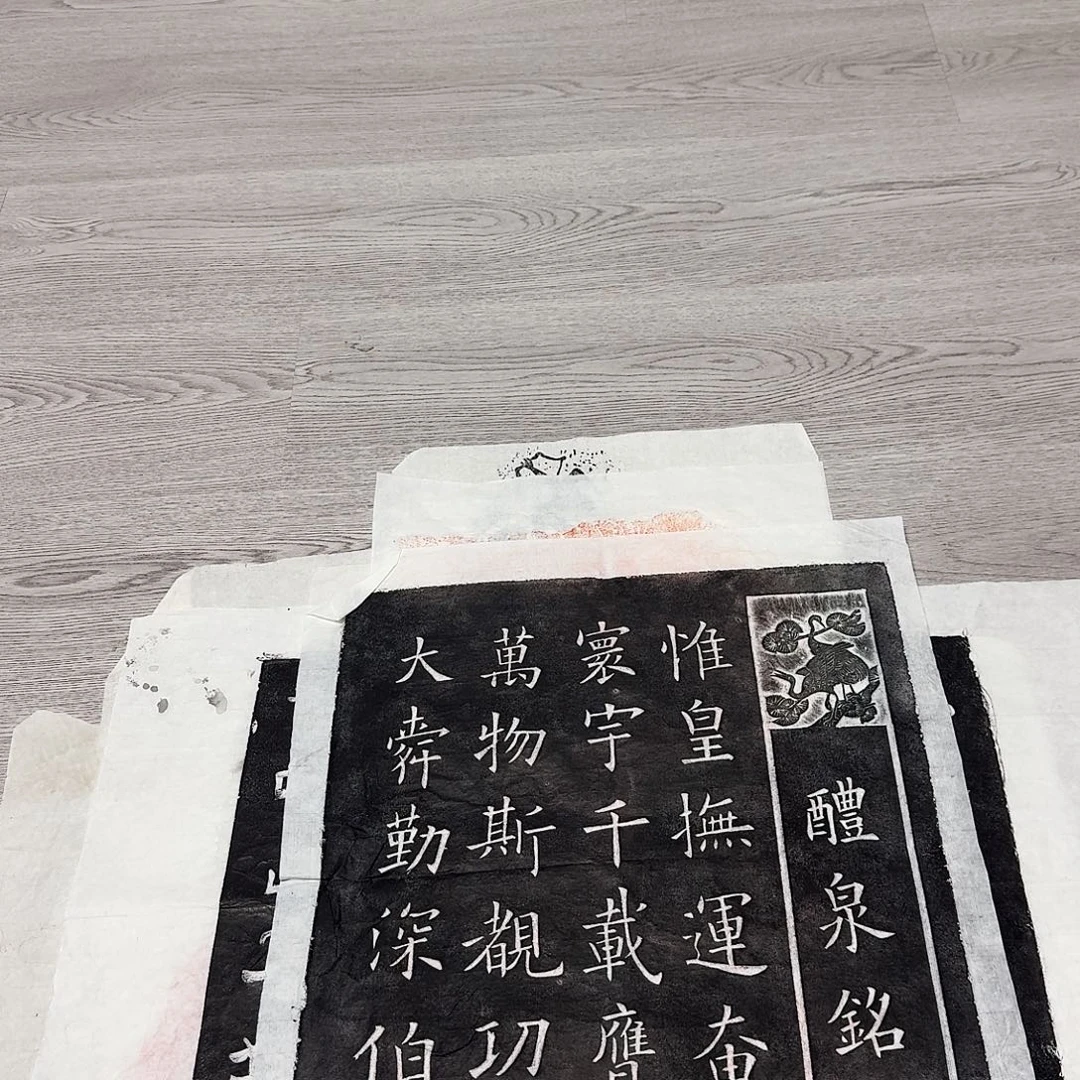 醴泉銘
惟皇撫運奄
寰宇千載膺
萬物斯覩功
大舜勤深伯